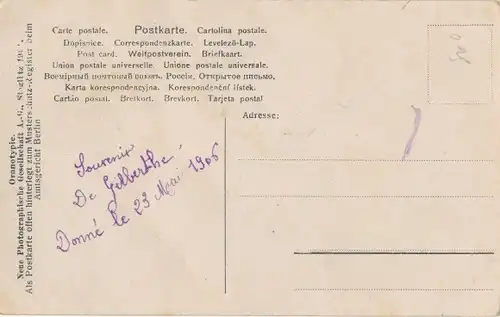 Carte postale. Postkarte. Cartolina postale.
Dopisnice. Correspondenzkarte. Levelező-Lap.
Post card. Weltpostverein. Briefkaart.
Union postale universelle. Unione postale universale.
Всемірный почтовый союзъ. Россія. Открытое письмо.
Karta korespondencyjna. Korespondenční lístek.
Cartão postal. Bretkort. Brevkort. Tarjeta postal
Adresse:
Souvenir
De Gilberthe
Donné le 23 Mai 1906
Oranotypie.
Neue Photographische Gesellschaft A.-G., Steglitz
Als Postkarte offen hinterlegt zum Musterschutz-Register beim
Amtsgericht Berlin